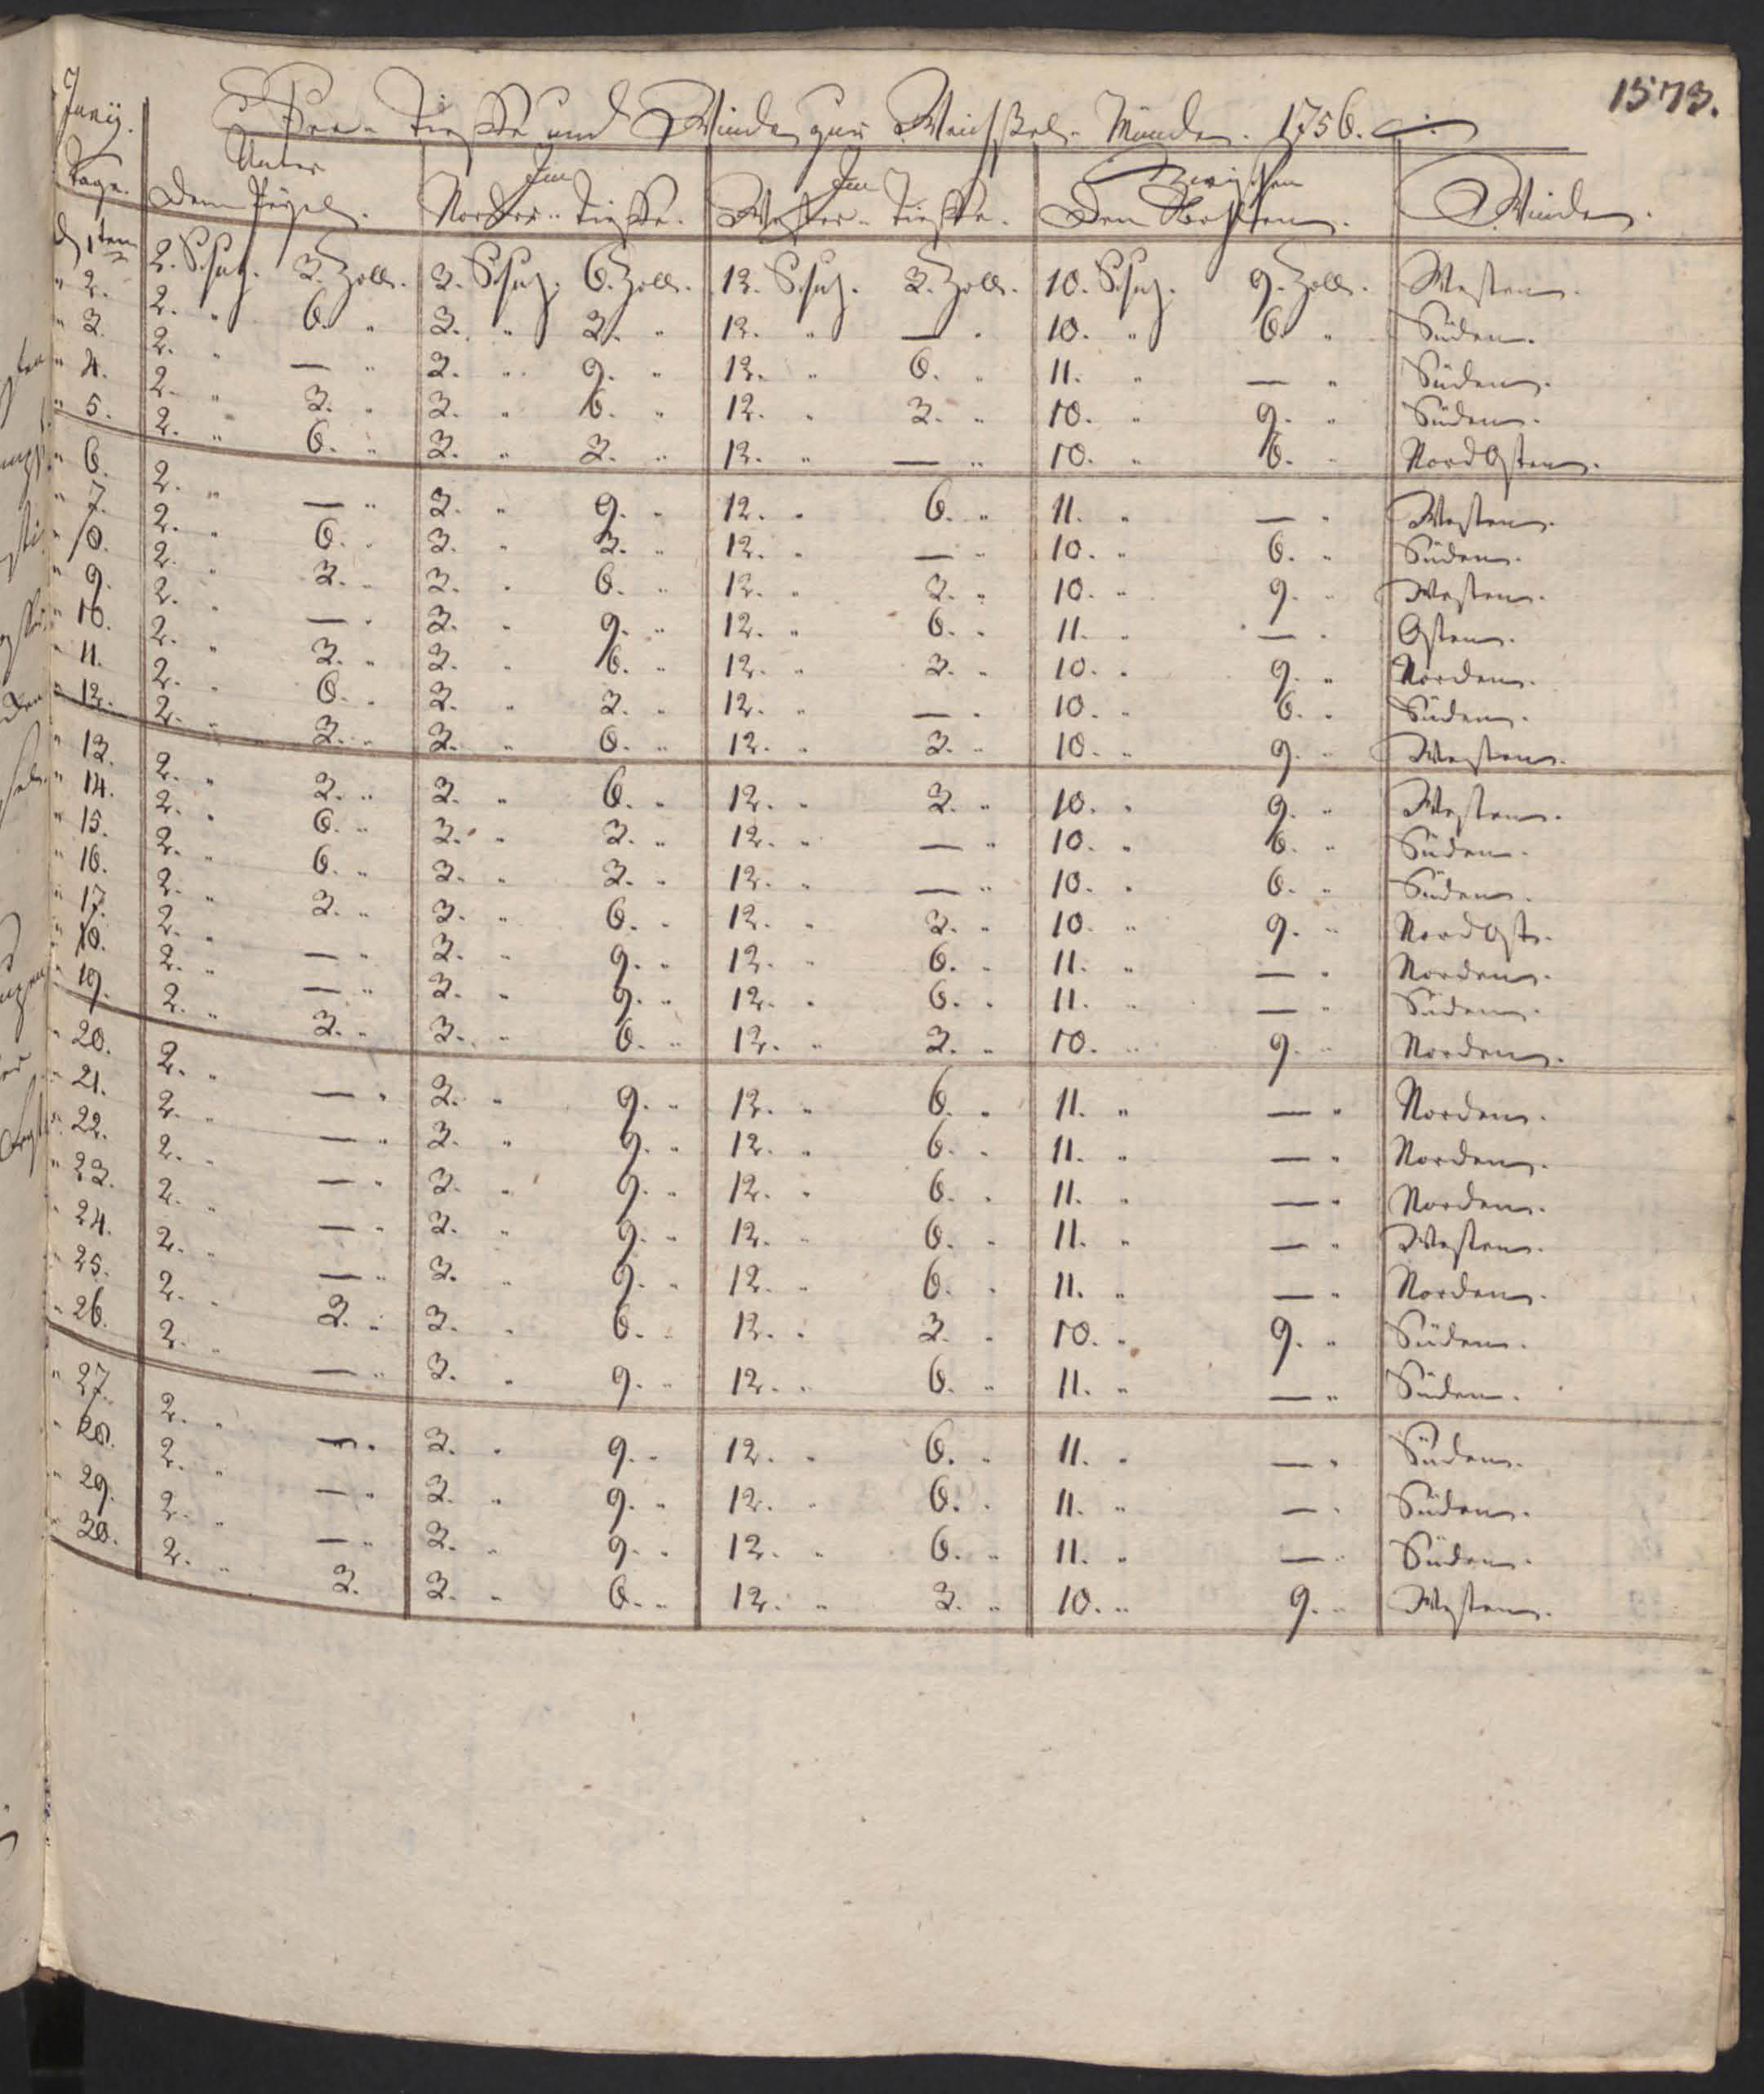 1573.
See-Tieffe und Winde zur Weichßel-Münde. 1756.
Junij. Tage. Unter dem Pegel. Im Norder-Tieffe. Im Wester-Tieffe. Zwischen den Winde.
d 1ten 2. Schuh. 3. Zoll. 3. Schuh. 6. Zoll. 12. Schuh. 3. Zoll. 10. Schuh. 9. Zoll. Westen.
" 2. 2. " 6. " 3. " 3. " 12. " — " 10. " 6. " Süden.
" 3. 2. " — " 3. " 9. " 12. " 6. " 11. " — " Süden.
" 4. 2. " 3. " 3. " 6. " 12. " 3. " 10. " 9. " Süden.
" 5. 2. " 6. " 3. " 3. " 12. " — " 10. " 6. " NordOsten.
" 6. 2. " — " 3. " 9. " 12. " 6. " 11. " — " Westen.
" 7. 2. " 6. " 3. " 3. " 12. " — " 10. " 6. " Süden.
" 8. 2. " 3. " 3. " 6. " 12. " 3. " 10. " 9. " Westen.
" 9. 2. " — " 3. " 9. " 12. " 6. " 11. " — " Osten.
" 10. 2. " 3. " 3. " 6. " 12. " 3. " 10. " 9. " Norden.
" 11. 2. " 6. " 3. " 3. " 12. " — " 10. " 6. " Süden.
" 12. 2. " 3. " 3. " 6. " 12. " 3. " 10. " 9. " Westen.
" 13. 2. " 3. " 3. " 6. " 12. " 3. " 10. " 9. " Westen.
" 14. 2. " 6. " 3. " 3. " 12. " — " 10. " 6. " Süden.
" 15. 2. " 6. " 3. " 3. " 12. " — " 10. " 6. " Süden.
" 16. 2. " 3. " 3. " 6. " 12. " 3. " 10. " 9. " NordOst.
" 17. 2. " — " 3. " 9. " 12. " 6. " 11. " — " Norden.
" 18. 2. " — " 3. " 9. " 12. " 6. " 11. " — " Süden.
" 19. 2. " 3. " 3. " 6. " 12. " 3. " 10. " 9. " Norden.
" 20. 2. " — " 3. " 9. " 12. " 6. " 11. " — " Norden.
" 21. 2. " — " 3. " 9. " 12. " 6. " 11. " — " Norden.
" 22. 2. " — " 3. " 9. " 12. " 6. " 11. " — " Norden.
" 23. 2. " — " 3. " 9. " 12. " 6. " 11. " — " Westen.
" 24. 2. " — " 3. " 9. " 12. " 6. " 11. " — " Norden.
" 25. 2. " 3. " 3. " 6. " 12. " 3. " 10. " 9. " Süden.
" 26. 2. " — " 3. " 9. " 12. " 6. " 11. " — " Süden.
" 27. 2. " — " 3. " 9. " 12. " 6. " 11. " — " Süden.
" 28. 2. " — " 3. " 9. " 12. " 6. " 11. " — " Süden.
" 29. 2. " — " 3. " 9. " 12. " 6. " 11. " — " Süden.
" 30. 2. " 3. 3. " 6. " 12. " 3. " 10. " 9. " Westen.